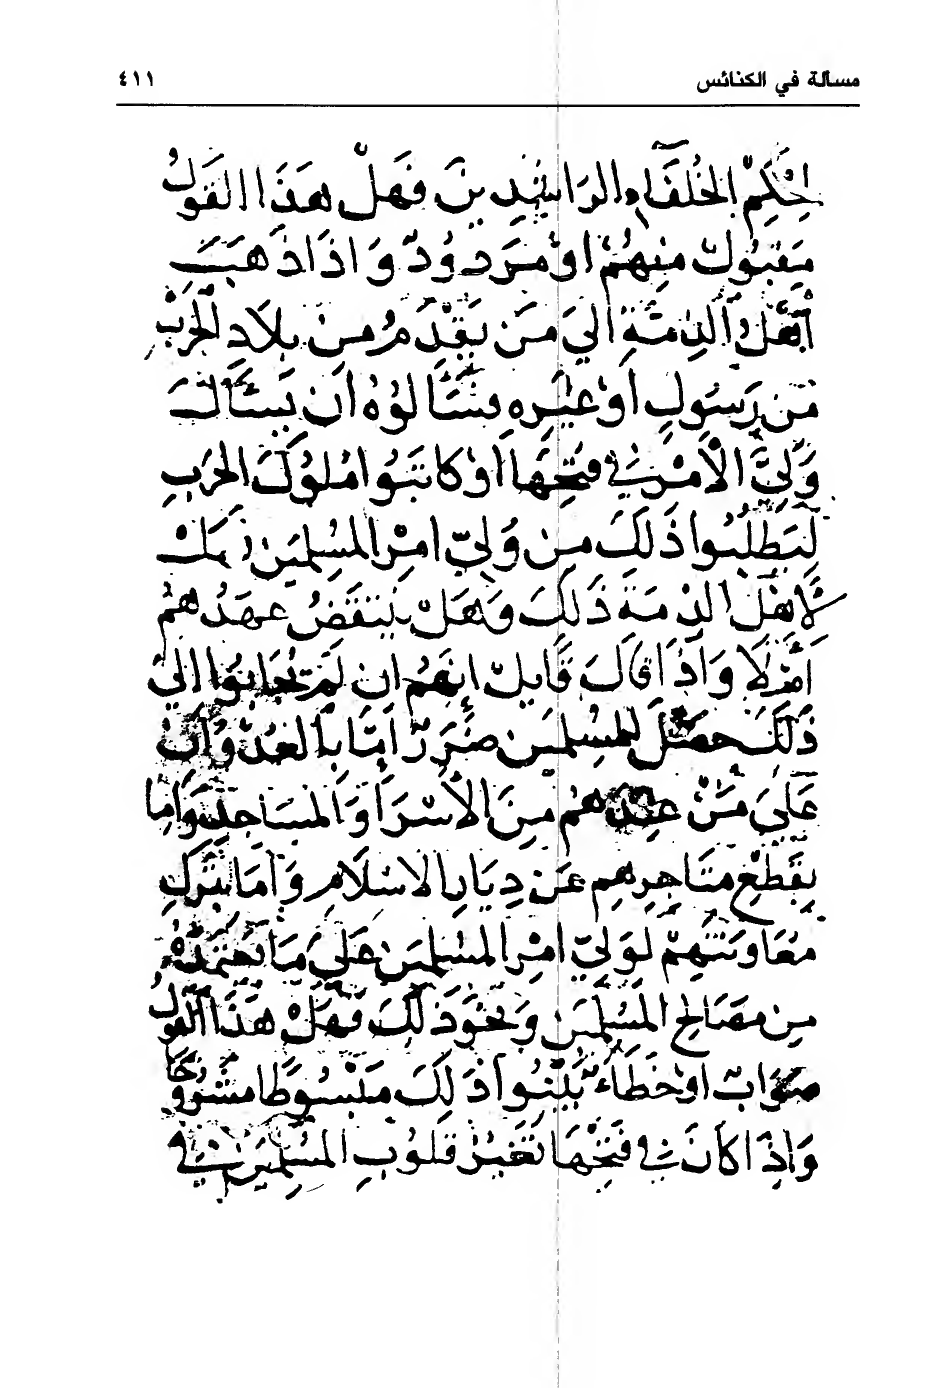 مسألة في الكنائس
٤١١
لِحُكْمِ الخُلفَآءِ الرَاشِدِينَ فَهَلْ هَذَا القَولُ
مَقبُولٌ مِنهُمْ اوْ مَردُودٌ وَاذَا ذَهَبَ
أهْلُ الذِمَّةِ اليَ مَن يَقْدَمُ مِنْ بِلَادِ الحَربْ
مِن رَسُولٍ اَوْ غَيْرِه يَسْئَالُوْهُ اَن يَسئَالَ
وَليَّ الأَمْرِ فيْ فَتْحِهَا اَوْ كاتَبُوا مُلُوكَ الحَربِ
لِيَطلُبُوا ذَلكَ مِن وَليّ امْر المُسلِمينَ
لأهْل الذِمةِ ذَلكَ وَهَلْ يَنتَقِضُ عَهدُهُمْ
أمْ لَا وَاذَا قَالَ قَايلٌ إنهَمُ ان لَم يُجَابُوا اليَ
ذَلكَ حصَلَ للمُسلمينَ ضَرَرٌ اِمّا بالعُدْوَانْ
عَليَ مَنْ عِندَهُم مِنَ الأَسْرَا وَالمسَاجِد وَاِما
بِقَطعْ مَتَاجِرِهِم عَن دِيَارِ الاسْلَامِ وَاِمَا بتَركِ
مُعَاوَنَتِهِمْ لوَليّ امْر المسْلِمينَ عَليَ مَا يَعتَمدُهْ
مِن مصَالحِ المُسْلمَينَ وَنَحْوَ ذَلكَ فَهَلْ هَذَا القَولُ
صَوَابٌ اوْ خَطَاءٌ بَيّنُوا ذَلكَ مَبْسُوطًا مَشرُوحًا
وَاِذَا كَانَ في فَتْحِهَا تَغَيُر قلُوبِ المسْلِمينَ في